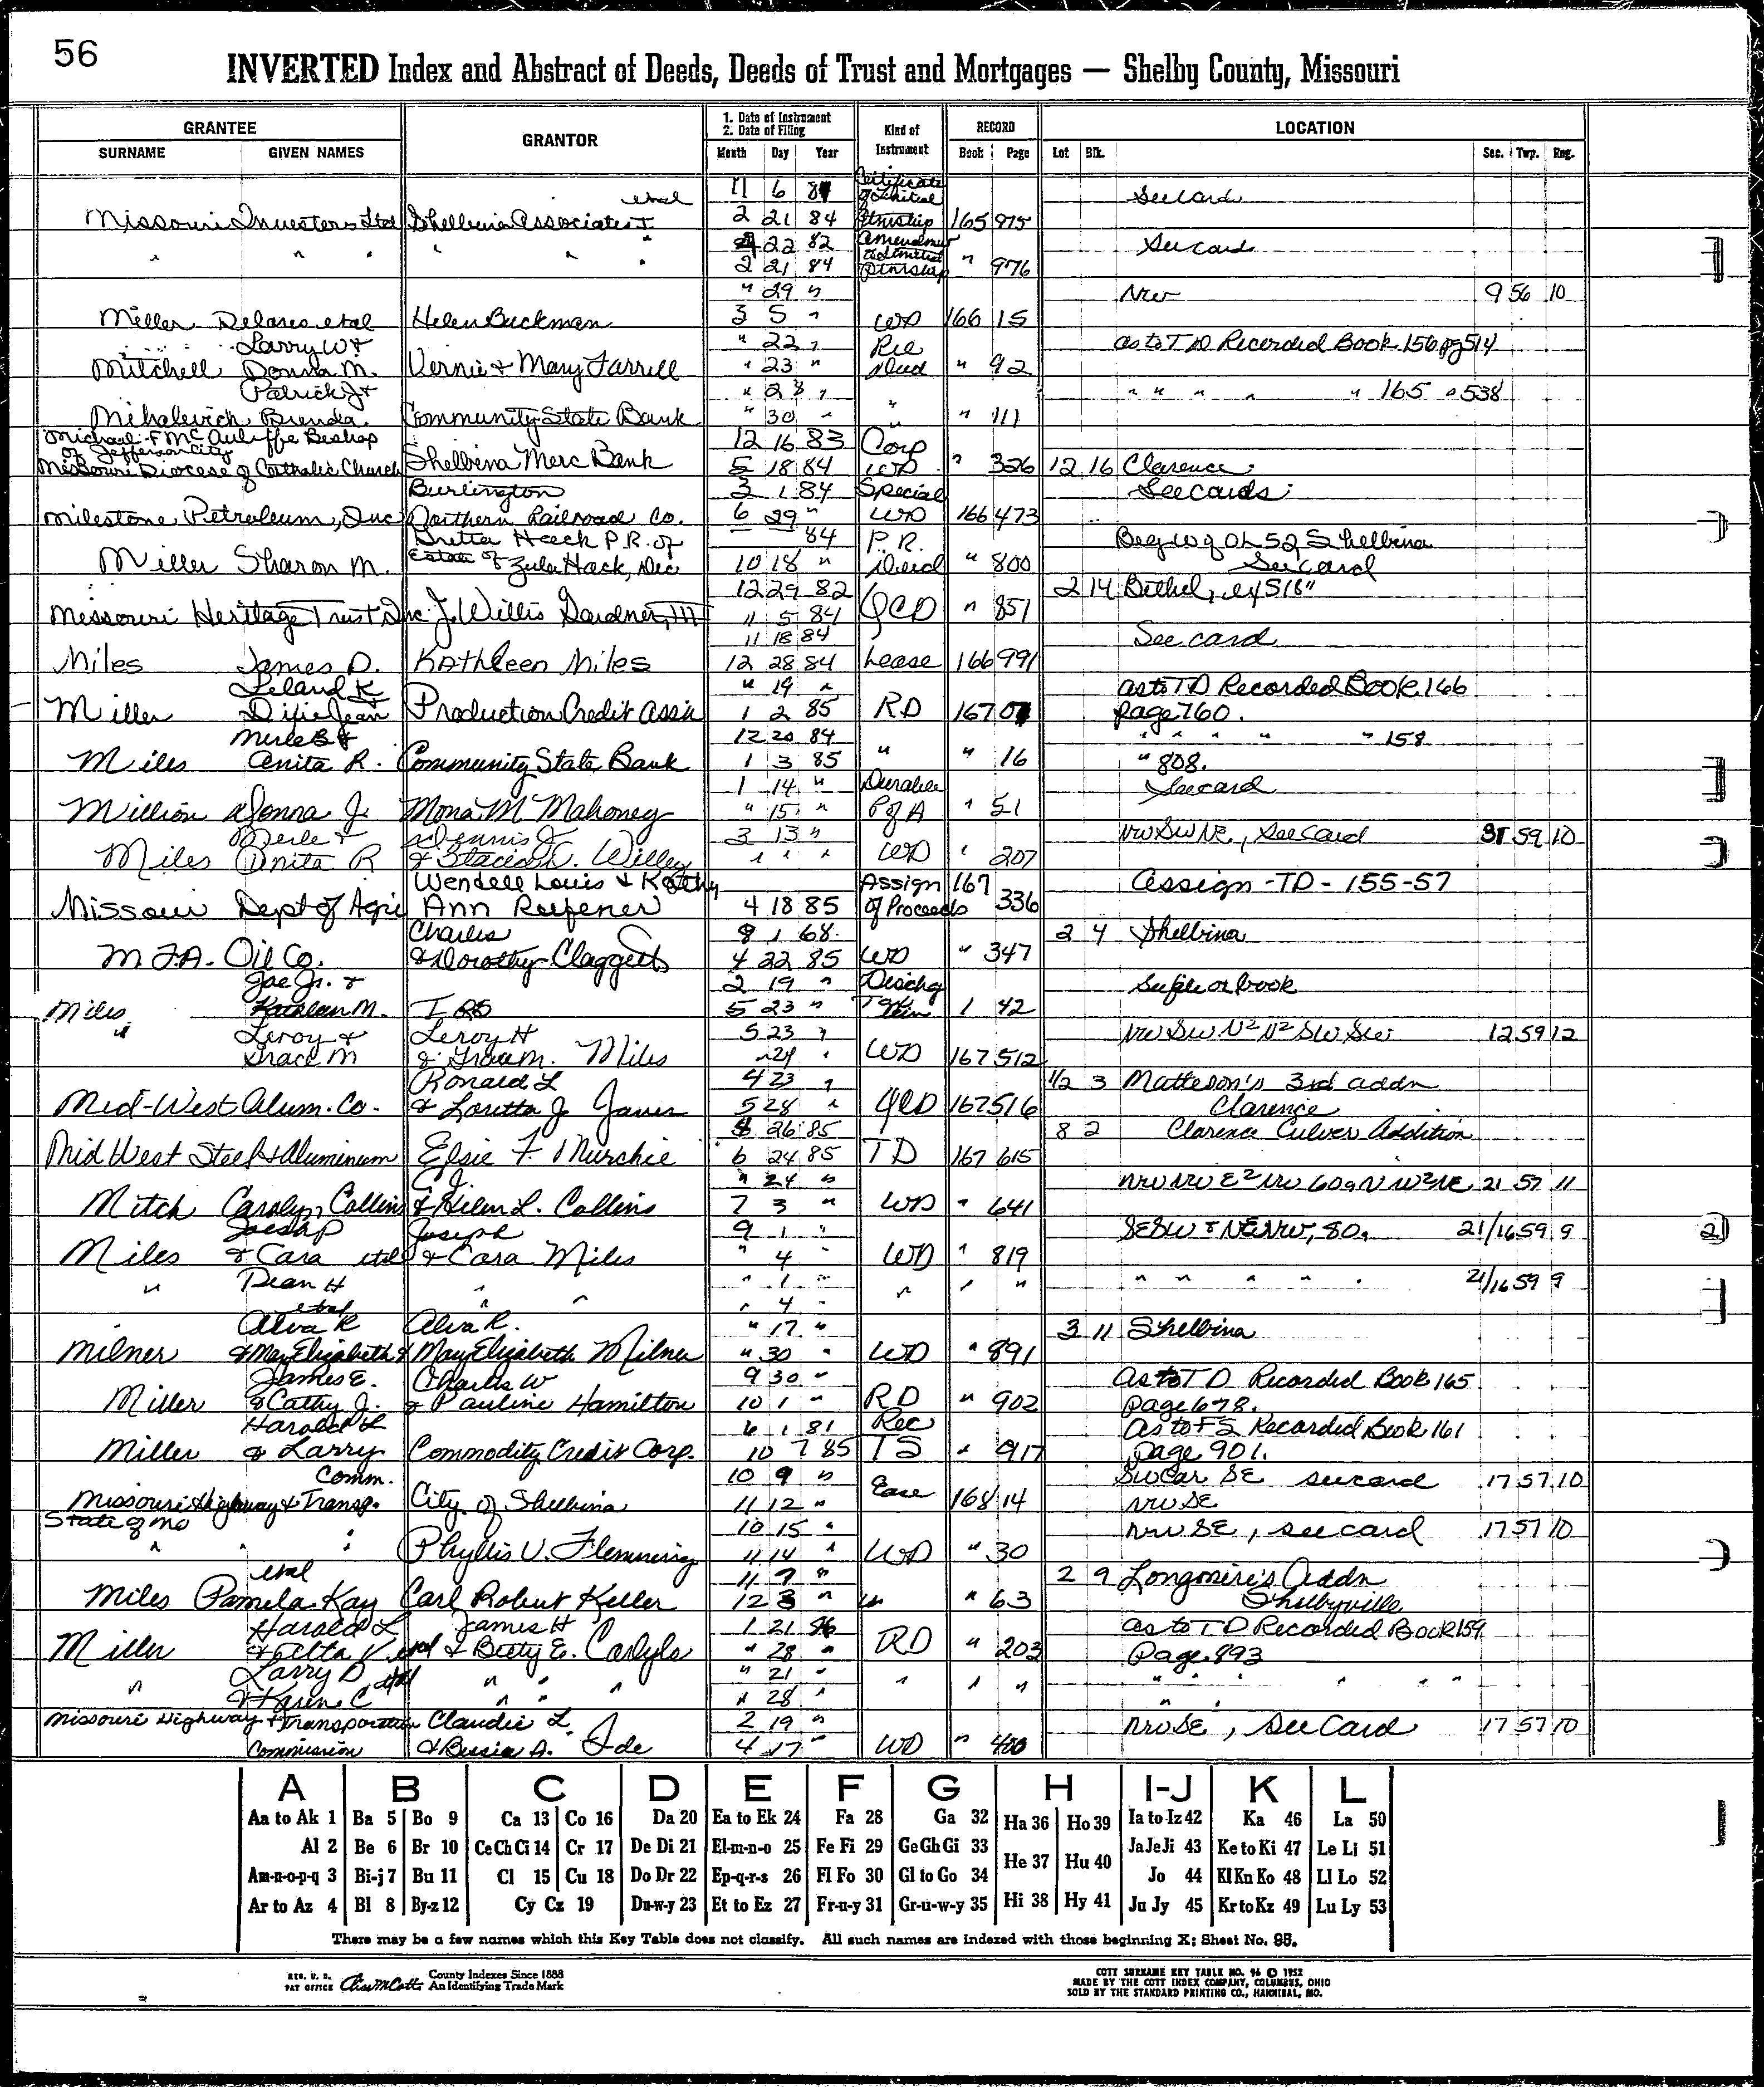 56
INVERTED Index and Abstract of Deeds, Deeds of Trust and Mortgages — Shelby County, Missouri
GRANTEE GRANTOR 1. Date of Instrument 2. Date of Filing Kind of Instrument RECORD LOCATION
SURNAME GIVEN NAMES Month Day Year Book Page Lot Blk. Sec. Twp. Rng.
etal 11 6 Certificate of Limited See card
Missouri Investors Ltd Shelbina Associates I 2 21 84 Ptnrship 165 975
" " " " " 22 82 Amendment to Limited See card
2 21 84 Ptnrship " 976
" 29 " NW 9 56 10
Miller Delores etal Helen Buckman 3 5 " WD 166 15
Larry W & " 22 " Rel as to TD Recorded Book 156 pg 514
Mitchell Donna M. Vernie & Mary Farrell " 23 " Deed " 92
Patrick J & " 28 " " " " " " 165 " 538
Mihalevich Brenda Community State Bank " 30 " " " 111
Michael F McAuliffe Bishop of Jefferson City 12 16 83 Corp
Missouri Diocese of Catholic Church Shelbina Merc Bank 5 18 84 WD " 326 12 16 Clarence
Burlington 3 1 84 Special See cards
Milestone Petroleum, Inc Northern Railroad Co. 6 29 " WD 166 473
Hack P.R. of 84 P.R. Beg W of OL 52 Shelbina
Miller Sharon M. Estate of Zula Hack, Dec 10 18 " Deed " 800 See card
12 29 82 2 14 Bethel, ex S 18"
Missouri Heritage Trust Inc J. Willis Gardner, III 11 5 84 QCD " 851
11 18 84 See card
Miles James D. Kathleen Miles 12 28 84 Lease 166 991
Leland K " 19 " as to TD Recorded Book 166
Miller Dixie Jean Production Credit Assn 1 2 85 RD 167 page 760.
Merle B & 12 20 84 " " " " " 158
Miles Anita R. Community State Bank 1 3 85 " " 16 " 808.
1 14 " Durable See card
Million Donna J. Mona M Mahoney " 15 " P of A " 51
Merle & Dennis J 3 13 " NW SW NE, See Card 31 59 10
Miles Anita R & Stacia Willey " " " WD " 207
Wendell Louis & Kathy Assign 167 Assign - TD - 155-57
Missouri Dept of Agri Ann Roefener 4 18 85 of Proceeds 336
Charles 8 1 68 2 4 Shelbina
M.F.A. Oil Co. & Dorothy Claggett 4 22 85 WD " 347
Joe Jr. & 2 19 " Dischg See file or book
Miles Kathleen M. IRS 5 23 " Tax Lien 1 42
" Leroy & Leroy H 5 23 " NW SW N2 N2 SW SW 12 59 12
Grace M & Grace M. Miles " 24 " WD 167 512
Ronald L 4 23 " 1/2 3 Matteson's 3rd addn
Mid-West Alum. Co. & Loretta J 5 28 " QCD 167 516 Clarence
26 85 8 2 Clarence Culver Addition
Mid West Steel & Aluminum Elsie F. Murchie 6 24 85 TD 167 615
C.J. " 24 " NW NW E2 NW 60a N W2 NE 21 57 11
Mitch Carolyn Collins & Helen L. Collins 7 3 " WD " 641
Joseph Joseph 9 1 " SESW & NENW, 80. 21/16 59 9
Miles & Cara etal & Cara Miles " 4 " WD " 819
" Dean H " " " 1 " " " " " " " " 21/16 59 9
etal " 4 "
Alva R Alva R. " 17 " 3 11 Shelbina
Milner & May Elizabeth & May Elizabeth Milner " 30 " WD " 891
James E. Charles W 9 30 " As to TD Recorded Book 165
Miller & Cathy J. & Pauline Hamilton 10 1 " RD " 902 page 678.
Harold L 6 1 81 Rec As to FS Recorded Book 161
Miller & Larry Commodity Credit Corp. 10 7 85 TS " 917 page 901.
Comm. 10 9 " SW Cor SE see card 17 57 10
Missouri Highway & Transp. City of Shelbina 11 12 " Ease 168 14 NW SE
State of Mo 10 15 " NW SE, see card 17 57 10
" " " Phyllis V. Flemming 11 14 " WD " 30
etal 11 9 " 2 9 Longmire's Addn
Miles Pamela Kay Carl Robert Keller 12 3 " " " 63 Shelbyville
Harold L James H 1 21 86 as to TD Recorded Book 159
Miller & Etta K. etal & Betty E. Carlyle " 28 " RD " 203 Page 893
" Larry D etal " " " " 21 " " " " " " " " " "
& Karen C " " " " 28 " " "
Missouri Highway & Transportation Claudie L. 2 19 " NWSE, See Card 17 57 10
Commission & Bessie A. Ide 4 17 " WD " 400
A B C D E F G H I-J K L
Aa to Ak 1 Ba 5 Bo 9 Ca 13 Co 16 Da 20 Ea to Ek 24 Fa 28 Ga 32 Ha 36 Ho 39 Ia to Iz 42 Ka 46 La 50
Al 2 Be 6 Br 10 Ce Ch Ci 14 Cr 17 De Di 21 El-m-n-o 25 Fe Fi 29 Ge Gh Gi 33 He 37 Hu 40 Ja Je Ji 43 Ke to Ki 47 Le Li 51
Am-n-o-p-q 3 Bi-j 7 Bu 11 Cl 15 Cu 18 Do Dr 22 Ep-q-r-s 26 Fl Fo 30 Gl to Go 34 Jo 44 Kl Kn Ko 48 Ll Lo 52
Ar to Az 4 Bl 8 By-z 12 Cy Cz 19 Du-w-y 23 Et to Ez 27 Fr-u-y 31 Gr-u-w-y 35 Hi 38 Hy 41 Ju Jy 45 Kr to Kz 49 Lu Ly 53
There may be a few names which this Key Table does not classify. All such names are indexed with those beginning X; Sheet No. 95.
REG. U. S. PAT OFFICE County Indexes Since 1888 An Identifying Trade Mark
COTT SURNAME KEY TABLE NO. 96 © 1952
MADE BY THE COTT INDEX COMPANY, COLUMBUS, OHIO
SOLD BY THE STANDARD PRINTING CO., HANNIBAL, MO.